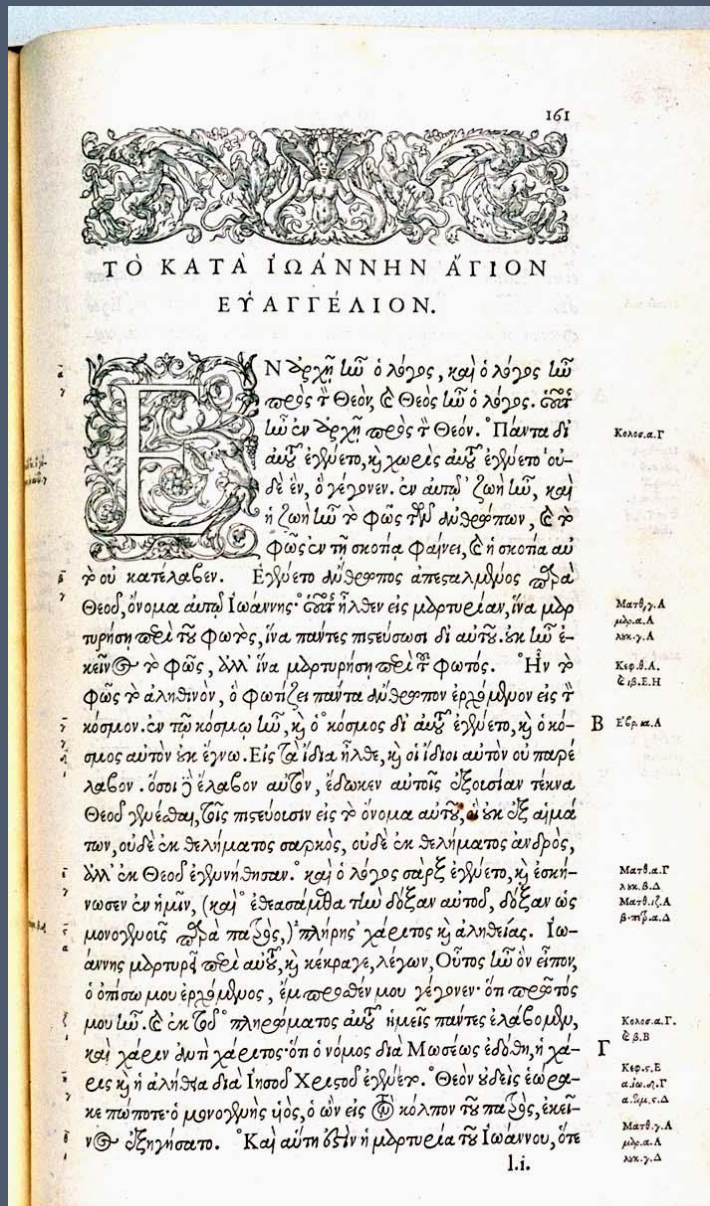 161
ΤΟ ΚΑΤΑ ἸΩΆΝΝΗΝ ἍΓΙΟΝ
ΕΥ̓ΑΓΓΈΛΙΟΝ.
ΕΝ ἀρχῇ ἦν ὁ λόγος, καὶ ὁ λόγος ἦν
πρὸς τὸν Θεόν, καὶ Θεὸς ἦν ὁ λόγος. οὗτος
ἦν ἐν ἀρχῇ πρὸς τὸν Θεόν. Πάντα δι
αὐτοῦ ἐγένετο, καὶ χωρὶς αὐτοῦ ἐγένετο οὐ-
δὲ ἓν, ὃ γέγονεν. ἐν αὐτῷ ζωὴ ἦν, καὶ
ἡ ζωὴ ἦν τὸ φῶς τῶν ἀνθρώπων, καὶ τὸ
φῶς ἐν τῇ σκοτίᾳ φαίνει, καὶ ἡ σκοτία αὐ
τὸ οὐ κατέλαβεν. Ἐγένετο ἄνθρωπος ἀπεσταλμένος παρὰ
Θεοῦ, ὄνομα αὐτῷ Ἰωάννης· οὗτος ἦλθεν εἰς μαρτυρίαν, ἵνα μαρ
τυρήσῃ περὶ τοῦ φωτὸς, ἵνα πάντες πιστεύσωσι δι αὐτοῦ. οὐκ ἦν ἐ-
κεῖνος τὸ φῶς, ἀλλ' ἵνα μαρτυρήσῃ περὶ τοῦ φωτός. Ἦν τὸ
φῶς τὸ ἀληθινὸν, ὃ φωτίζει πάντα ἄνθρωπον ἐρχόμενον εἰς τὸν
κόσμον. ἐν τῷ κόσμῳ ἦν, καὶ ὁ κόσμος δι αὐτοῦ ἐγένετο, καὶ ὁ κό-
σμος αὐτὸν οὐκ ἔγνω. Εἰς τὰ ἴδια ἦλθε, καὶ οἱ ἴδιοι αὐτὸν οὐ παρέ
λαβον. ὅσοι δὲ ἔλαβον αὐτὸν, ἔδωκεν αὐτοῖς ἐξουσίαν τέκνα
Θεοῦ γενέσθαι, τοῖς πιστεύουσιν εἰς τὸ ὄνομα αὐτοῦ, οἳ οὐκ ἐξ αἱμά
των, οὐδὲ ἐκ θελήματος σαρκὸς, οὐδὲ ἐκ θελήματος ἀνδρὸς,
ἀλλ' ἐκ Θεοῦ ἐγεννήθησαν. καὶ ὁ λόγος σὰρξ ἐγένετο, καὶ ἐσκή-
νωσεν ἐν ἡμῖν, (καὶ ἐθεασάμεθα τὴν δόξαν αὐτοῦ, δόξαν ὡς
μονογενοῦς παρὰ πατρὸς,) πλήρης χάριτος καὶ ἀληθείας. Ἰω-
άννης μαρτυρεῖ περὶ αὐτοῦ, καὶ κέκραγε, λέγων, Οὗτος ἦν ὃν εἶπον,
ὁ ὀπίσω μου ἐρχόμενος, ἔμπροσθέν μου γέγονεν· ὅτι πρῶτός
μου ἦν. καὶ ἐκ τοῦ πληρώματος αὐτοῦ ἡμεῖς πάντες ἐλάβομεν,
καὶ χάριν ἀντὶ χάριτος· ὅτι ὁ νόμος διὰ Μωσέως ἐδόθη, ἡ χά-
ρις καὶ ἡ ἀλήθεια διὰ Ἰησοῦ Χριστοῦ ἐγένετο. Θεὸν οὐδεὶς ἑώρα-
κε πώποτε· ὁ μονογενὴς υἱὸς, ὁ ὢν εἰς τὸν κόλπον τοῦ πατρὸς, ἐκεῖ-
νος ἐξηγήσατο. Καὶ αὕτη ἐστὶν ἡ μαρτυρία τοῦ Ἰωάννου, ὅτε
l.i.
Κολοσ.α.Γ
Ματθ.γ.Α
μαρ.α.Α
λυκ.γ.Α
Κεφ.θ.Α.
Β
Ματθ.α.Γ
λυκ.β.Δ
Ματθ.ιζ.Α
Κολοσ.α.Γ.
καὶ β.Β
Γ
Κεφ.ς.Ε
Ματθ.γ.Α
μαρ.α.Α
λυκ.γ.Δ